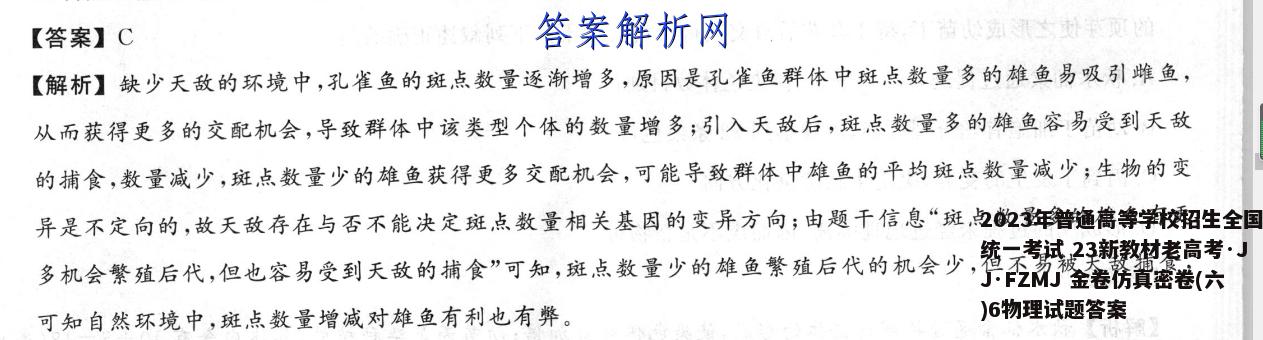 答案解析网
【答案】C
【解析】缺少天敌的环境中,孔雀鱼的斑点数量逐渐增多,原因是孔雀鱼群体中斑点数量多的雄鱼易吸引雌鱼,
从而获得更多的交配机会,导致群体中该类型个体的数量增多;引入天敌后,斑点数量多的雄鱼容易受到天敌
的捕食,数量减少,斑点数量少的雄鱼获得更多交配机会,可能导致群体中雄鱼的平均斑点数量减少;生物的变
异是不定向的,故天敌存在与否不能决定斑点数量相关基因的变异方向;由题干信息“斑点
多机会繁殖后代,但也容易受到天敌的捕食”可知,斑点数量少的雄鱼繁殖后代的机会少,但不易被天敌捕食,
可知自然环境中,斑点数量增减对雄鱼有利也有弊。
2023年普通高等学校招生全国
统一考试 23新教材老高考·J
J·FZMJ 金卷仿真密卷(六
)6物理试题答案